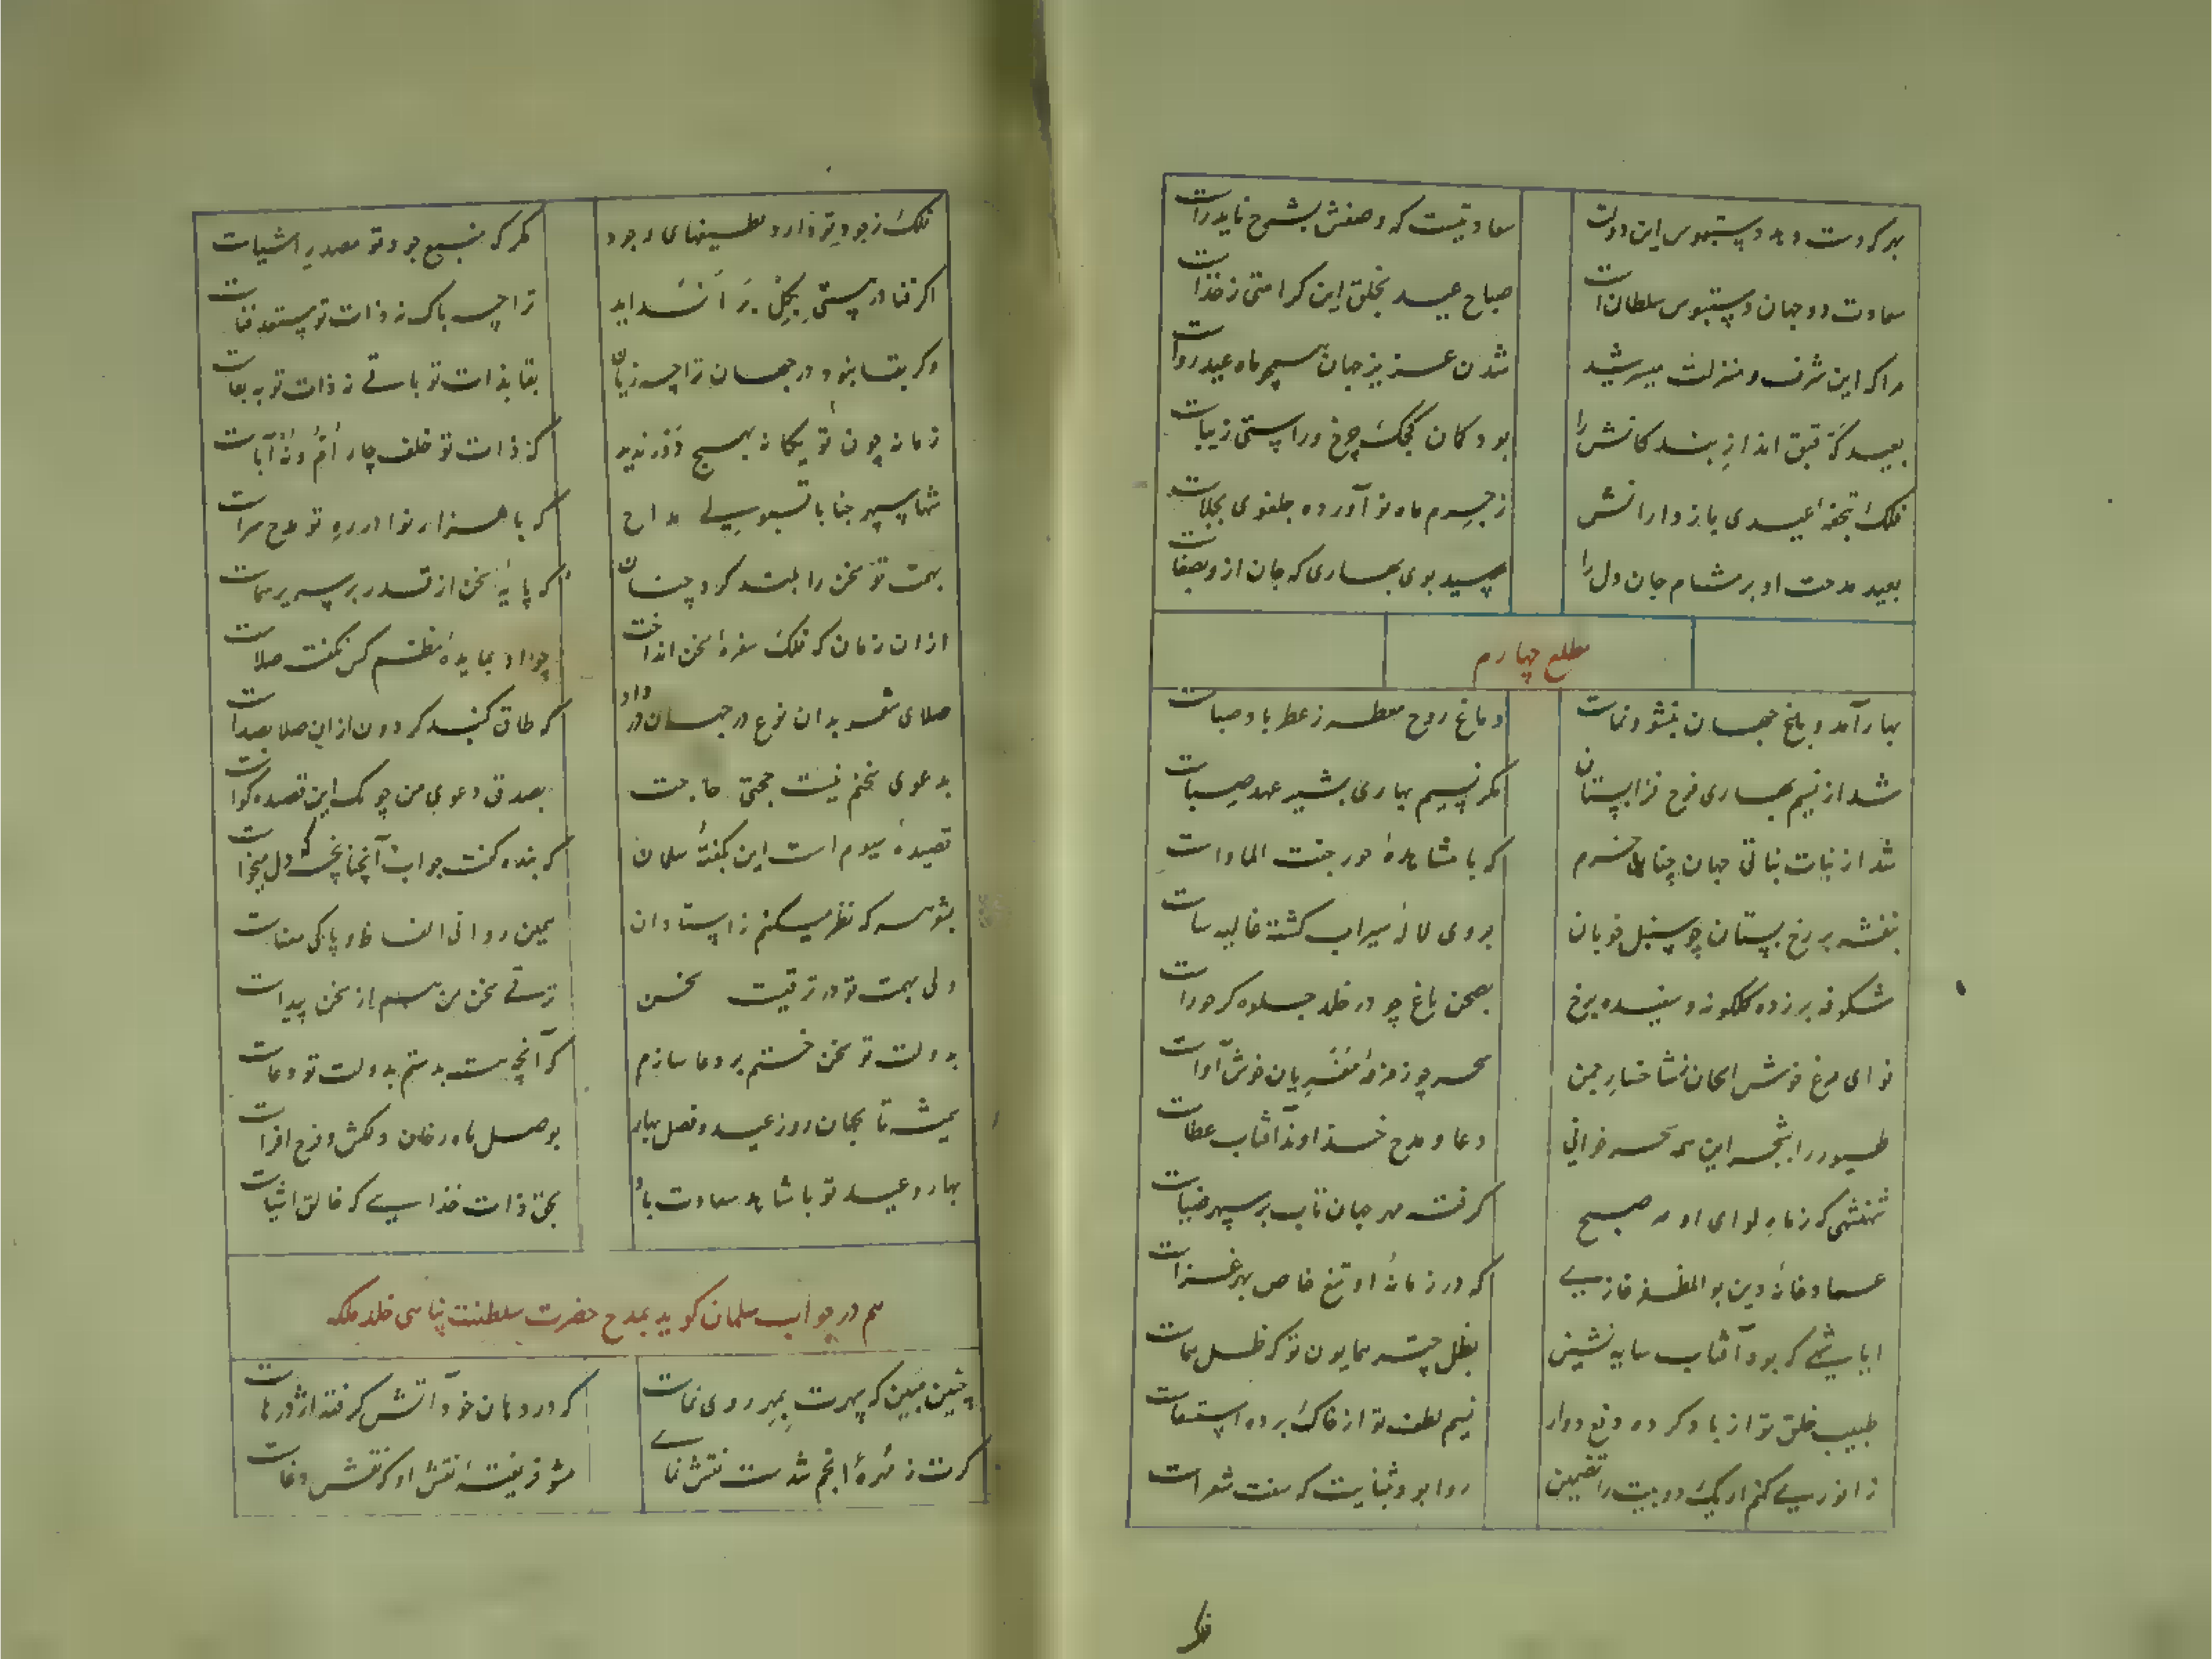 بهر که دست دهد دستبوس این دولت سعادتیست که وصفش بشرح ناید راست
سعادت دو جهان دستبوس سلطان است صباح عید بخلق این کرامتی ز خداست
مرا که این شرف و منزلت میسر شد شدن عزیز جهان همچو ماه عید رواست
بعید کز قبق انداز بندکانش را بود کمان کجک چرخ و راستی زیباست
فلک تحفهٔ عیدی بازدارانش ز جرم ماه نو آورده جلغوی بجلاست
بعید مدحت او بر مشام جان و دل را رسید بوی بهاری که جان ازو بصفاست
مطلع چهارم
بهار آمد و باغ جهان بنشو و نماست دماغ روح معطر ز عطر باد صباست
شد از نسیم بهاری فرح فزا بستان مکر نسیم بهاری بشیر عهد صباست
شد از نبات نباتی جهان چنان خرم که با مشاهدهٔ حور جنت الماواست
بنفشه بر رخ بستان چو سنبل خوبان بروی لالهٔ سیراب کشته غالیه ساست
شکوفه بر زده کلکونه و سفیده برخ بصحن باغ چو در خلد جلوه کر حوراست
نوای مرغ خوش الحان بشاخسار چمن سحر چو زمزمهٔ مقریان خوش آواست
طیور را بشجر این همه سحر خوانی دعا و مدح خداوند آفتاب عطاست
شهنشهی که ز ماه لوای او مه صبح کرفت مهر جهان تاب بر سپهر ضیاست
عماد خانهٔ دین بوالمظفر غازی که در زمانهٔ او تیغ خاص بهر غزاست
ایا شهی که بود آفتاب سایه نشین بظل چتر همایون تو که ظل هماست
طبیب خلق تو از باد کرده دفع دوار نسیم لطف تو از خاک برده استسقاست
ز انوری کنم ار یک دو بیت را تضمین روا بود بثنایت که سنت شعراست
فلک ز جود تو دارد لطیفهای وجود مکر که منبع جود تو مصدر اشیاست
اکر فنا در هستی بکل براند اید ترا چه باک نه ذات تو مستعد فناست
وکر بقا بنود در جهان ترا چه زیان بقا بذات تو باقی نه ذات تو به بقاست
زمانه چون تو یکانه بهیچ دور ندید که ذات تو خلف چار ام و نه آباست
شها سپهر جنابا تسبوسیلی مداح که با هزار نوا در ره تو مدح سراست
بهمت تو سخن را بلند کرد چنان که پایهٔ سخن از قدر بر سریر سماست
از ان زمان که فلک سفرهٔ سخن انداخت چو او بمایدهٔ نظم کس نکفت صلاست
صلای شعر بدان نوع در جهان در داد که طاق کنبد کردون از این صلا بصداست
بدعوی سخنم نیست حجتی حاجت بصدق دعوی من چو نک این قصیده کواست
قصیدهٔ سیوم است این بکفتهٔ سلمان که بنده کفت جواب آنچنانچه دل میخواست
بشو مسه که نظر میکنم ز استادان بیمین روانی الفاظ و پاکی معناست
ولی بهمت تو در ترقیست سخن ترقی سخن من هم از سخن پیداست
بدولت تو سخن ختم بر دعا سازم که آنچه هست بدستم بدولت تو دعاست
همیشه تا بجهان روز عید و فصل بهار بوصل ماه رخان دلکش و فرح افزاست
بهار و عید تو با شاهد سعادت باد بحق ذات خدایی که خالق اشیاست
هم در جواب سلمان کوید بمدح حضرت سلطنت پناهی خلد ملکه
چنین مبین که سپهرت بمهر روی نماست که در دهان خود آتش کرفته اژدرهاست
کرت ز مهرهٔ انجم شدست نقش نمای مشو فریفتهٔ نقش او که نقش دغاست
فلک